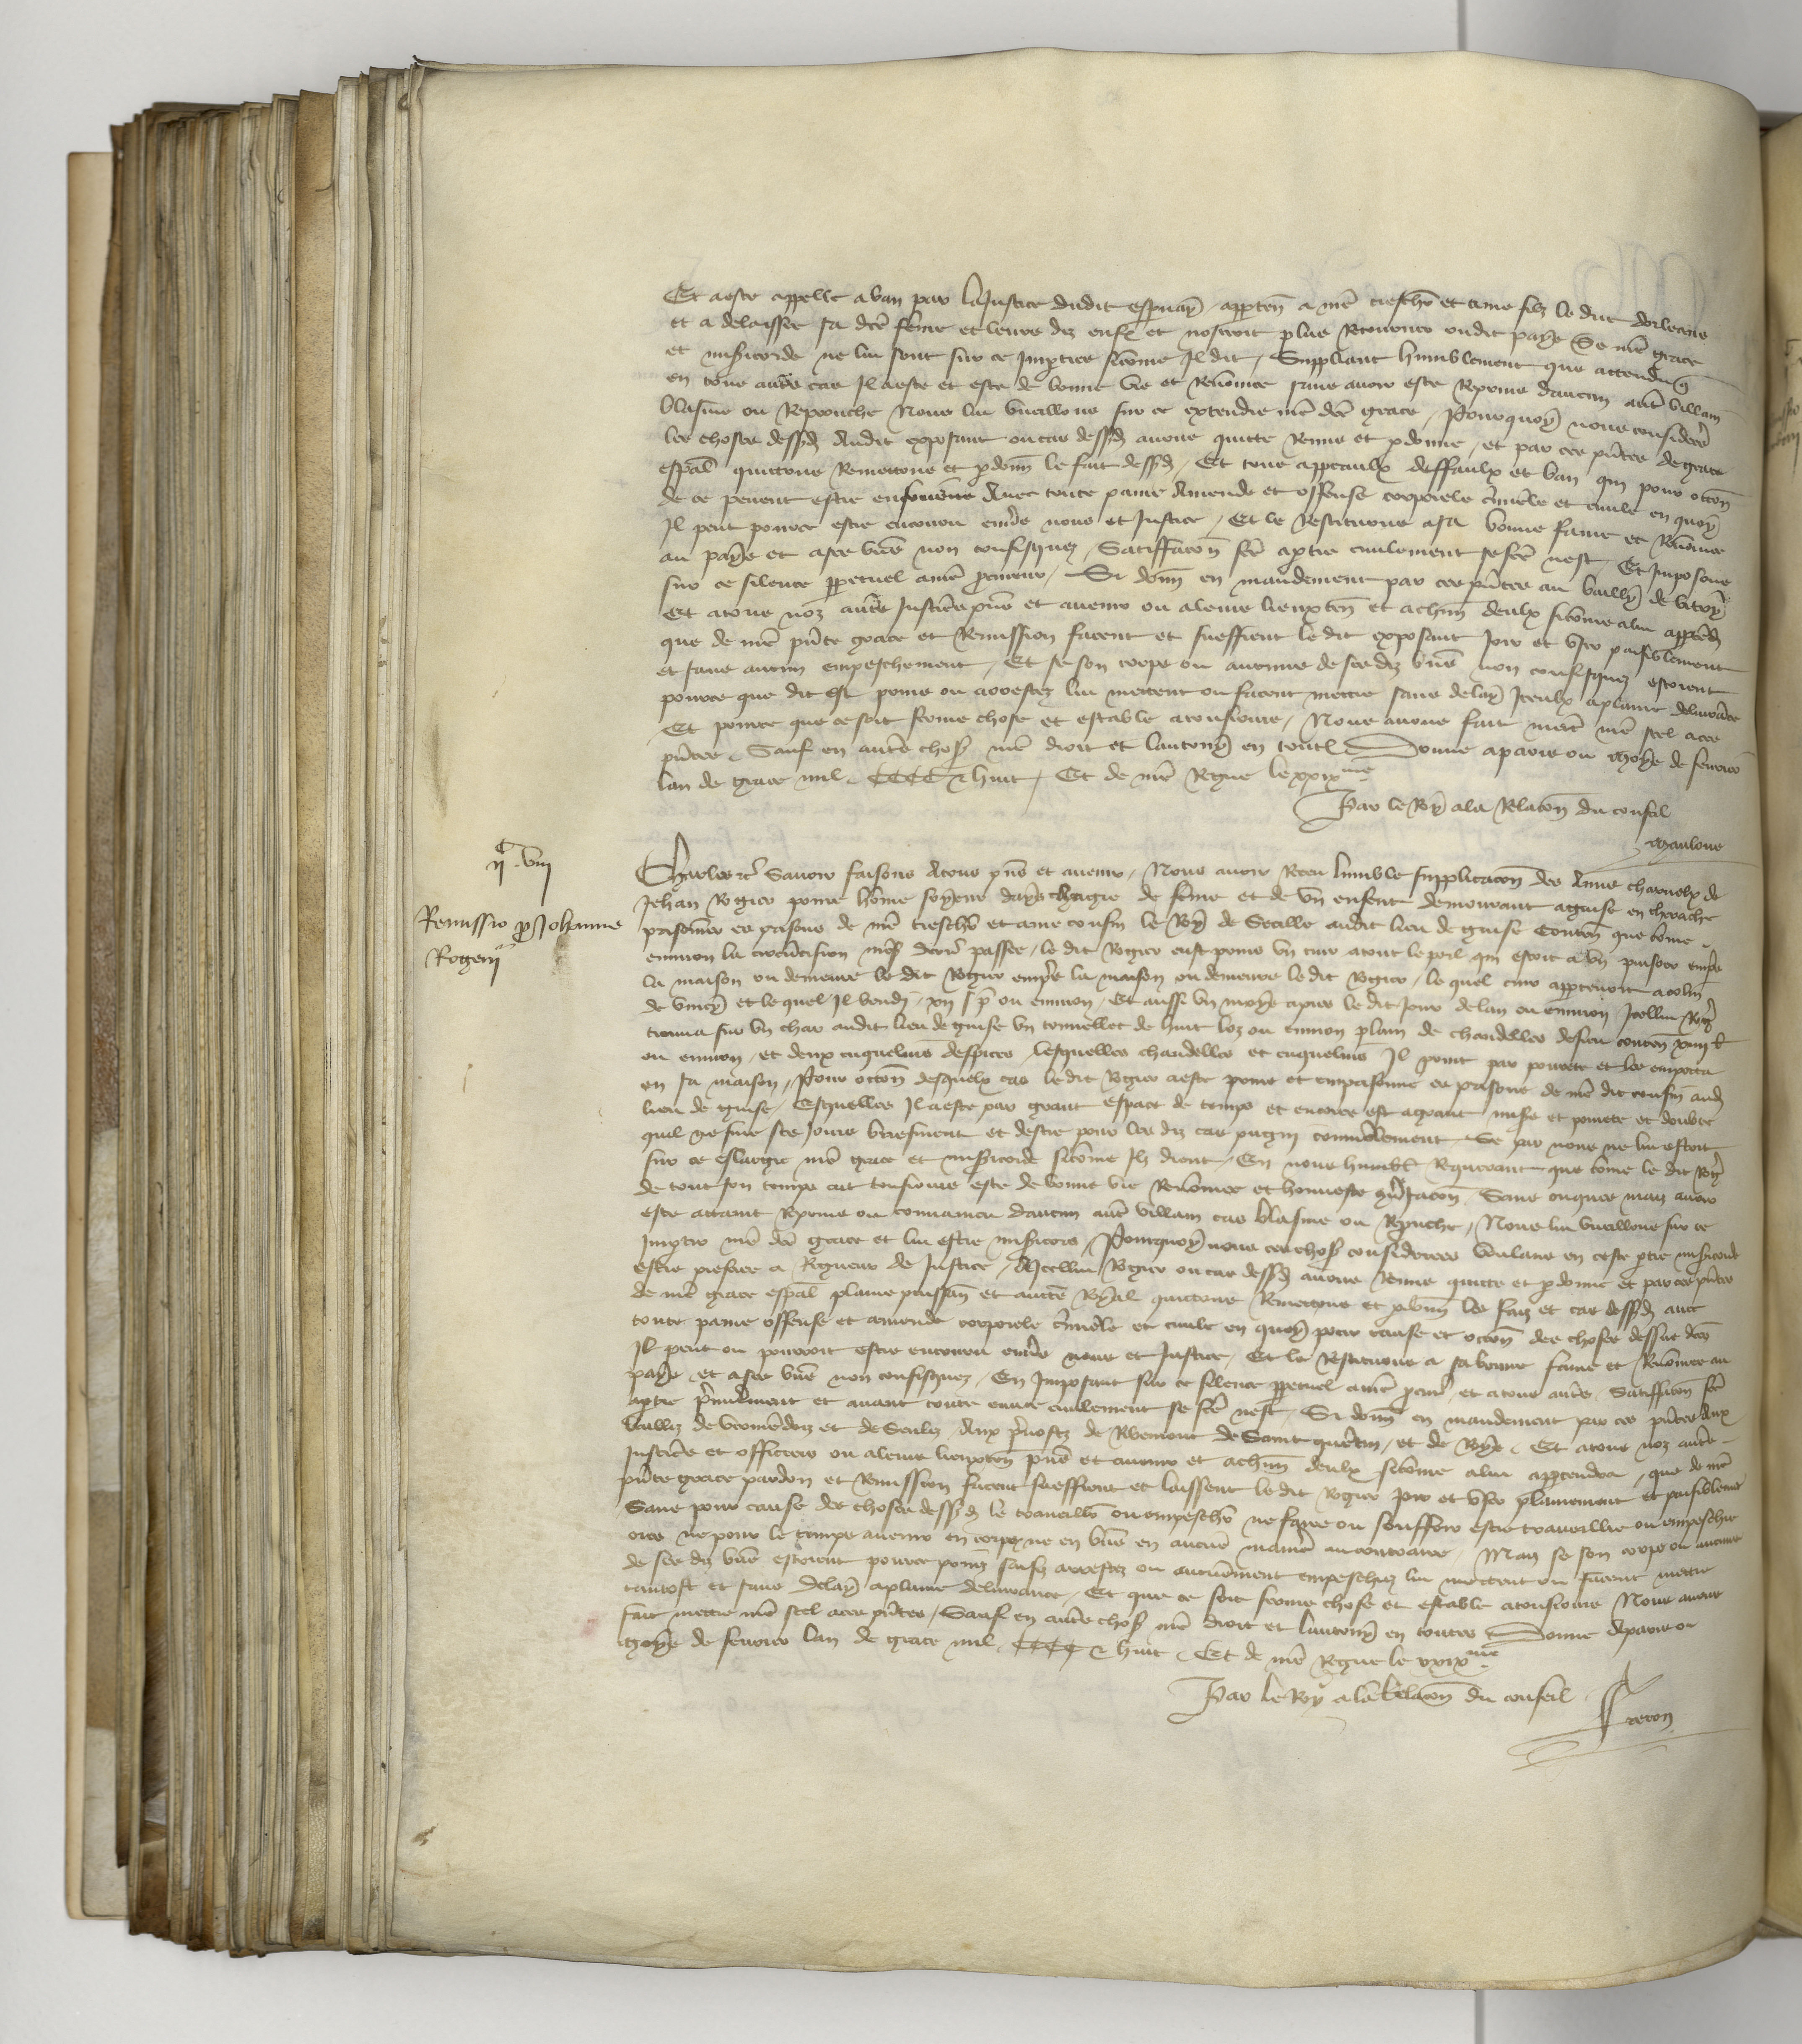 Et a este appelle a ban par la Justice dudit esparnay appten a nre treschr et ame filz le duc dorleans
et a delaissie sa dce feme et leurs diz enfs et noseroit plus retourner oudit pays se nre grace
et misericorde ne lui sont sur ce Impties sicome Il dit / Suppliant humblement que attendu q
en tous autres cas Il a este et est de bonne vie et renomee sans avoir este repris daucun autre villain
blasme ou reprouche Nous lui vueillons sur ce extendre nre dce grace / Pourquoy nous considere
les choses dessusd Audit exposant ou cas dessusd avons quitte remis et pdonne / et par ces pntes de grace
espal quittons remettons et pdonn le fait dessusd / Et tous appeaulx deffaulx et ban qui pour occon
de ce pevent estre ensuivis Avec toute paine Amende et offense corporele criminele et civile en quoy
Il peut pour ce estre encouru envers nous et Justice / Et le restituons a sa bonne fame et renomee
au pays et a ses biens non confisquez / Satiffacon fce a ptie civilement se fce nest / Et Imposons
sur ce silence ppetuel a nre procureur / Si donn en mandement par ces pntes au bailly de vitry
Et a tous noz autres Justiciers pns et avenir ou a leurs lieuxten et a chun deulx sicome a lui apptendra
que de nre pnte grace et remission facent et sueffrent le dit exposant Joir et user paisiblement
et sans aucun empeschement / Et se son corps ou aucuns de ses diz biens non confisquez estoient
pour ce que dit est prins ou arrestez lui mettent ou facent mettre sans delay Iceulx a plaine delivrance
Et pour ce que ce soit ferme chose et estable a tousiours / Nous avons fait mettre nre scel a ces
pntes / Sauf en autres choses nre droit et lautruy en toutes Donne a paris ou moys de fevrier
lan de grace mil CCCC & huit / Et de nre regne le xxix me
Par le Roy a la Relacon du conseil
Maulone
IIc VIII
Remissio pro Johanne
Rogerii
Charles etc Savoir faisons A tous pns et avenir / Nous avoir receu lumble supplicacon des Amis charnelx de
Jehan Rogier povre home soyeur days chargie de feme et de un enfant demourant a guise en therache
prisonnier es prisons de nre treschr et ame cousin le Roy de Secille audit lieu de guise Conten que come
environ la circoncision nres derr passee / le dit Rogier eust prins un cuir a tout le poil qui estoit a un puisoir empres
la maison ou demeure le dit Rogier empres la maison ou demeure le dit Rogier / le quel cuir apptenoit a colin
de vincy et le quel Il vendi xii s p ou environ / Et aussi un moys apres le dit Jour de lan ou environ Icellui Rogier
trouva sur un char audit lieu de guise un tonnellet de huit loz ou environ plain de chandelles de sieu conten xiiii l
ou environ / et deux cuquelins despices / lesquelles chandelles et cuquelins Il print par povrete et les emporta
en sa maison / Pour occon desquelx cas le dit Rogier a este prins et emprisonne es prisons de nre dit cousin aud
lieu de guise / Esquelles Il a este par grant espace de temps et encores est a grant misere et povrete et doubte
quil ne fine ses Jours briefment et destre pour les diz cas pugni criminelement / Se par nous ne lui estoit
sur ce eslargie nre grace et misericorde sicome Ilz dient / En nous humblt requerant que come le dit Rog
de tout son temps ait tousiours este de bonne vie renomee et honneste conversacon / Sans onques mais avoir
este attaint reprins ou convaincu daucun autre villain cas blasme ou reprouche / Nous lui vueillons sur ce
Imptir nre dce grace et lui estre misericors / Pourquoy nous ces choses considerees voulans en ceste ptie misericorde
estre preferee a Rigueur de Justice / A Icellui Rogier ou cas dessusd avons remis quitte et pdonne et par ces pntes
de nre grace espal plaine puissan et auctte Royal quittons remettons et pdonn les faiz et cas dessusd avec
toute paine offense et amende corporele criminele et civile en quoy pour cause et occon des choses dessus dces
Il peut ou pourroit estre encouru envers nous et Justice / Et le restituons a sa bonne fame et renomee au
pays et a ses biens non confisquez / En Imposant sur ce silence ppetuel a nre procur et a tous autres / Satiffacon fce
a ptie premierement et avant toute euvre civilement se fce nest / Si donn en mandement par ces pntes Aux
bailliz de vermendois et de Senliz / Aux prevostz de Ribemont de Saint quentin / et de Roye / Et a tous noz autres
Justiciers et officiers ou a leurs lieuxten pns et avenir et a chun deulx sicome a lui apptendra / que de nre
pnte grace pardon et remission facent sueffrent et laissent le dit Rogier Joir et user plainement et paisiblement
Sans pour cause des choses dessusd le travaillier ou empeschier ne faire ou souffrir estre travaillie ou empeschie
ores ne pour le temps avenir en corps ne en biens en aucune maniere au contraire / Mais se son corps ou aucuns
de ses diz biens estoient pour ce prins saisiz arrestez ou autrement empeschez lui mettent ou facent mettre
tantost et sans delay a plaine delivrance / Et que ce soit ferme chose et estable a tousiours Nous avons
fait mettre nre scel a ces pntes / Sauf en autres choses nre droit et lautruy en toutes Donne A paris ou
moys de fevrier lan de grace mil CCCC & huit / Et de nre regne le xxix me
Par le Roy a la Relacon du conseil
Freron